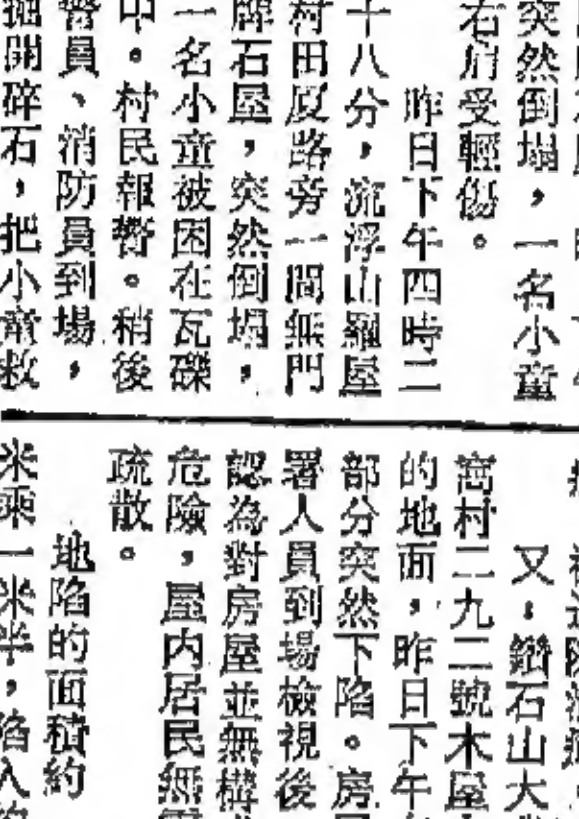 突然倒塌，一名小童
右肩受輕傷。
昨日下午四時二
十八分，流浮山羅屋
村田廈路旁一間無門
牌石屋，突然倒塌，
一名小童被困在瓦礫
中。村民報警。稍後
警員、消防員到場，
掘開碎石，把小童救
又，鑽石山大
窩村二九二號木屋
的地面，昨日下午
部分突然下陷。房
署人員到場檢視後
認為對房屋並無構
危險，屋內居民無
疏散。
地陷的面積約
米乘一米半，陷入